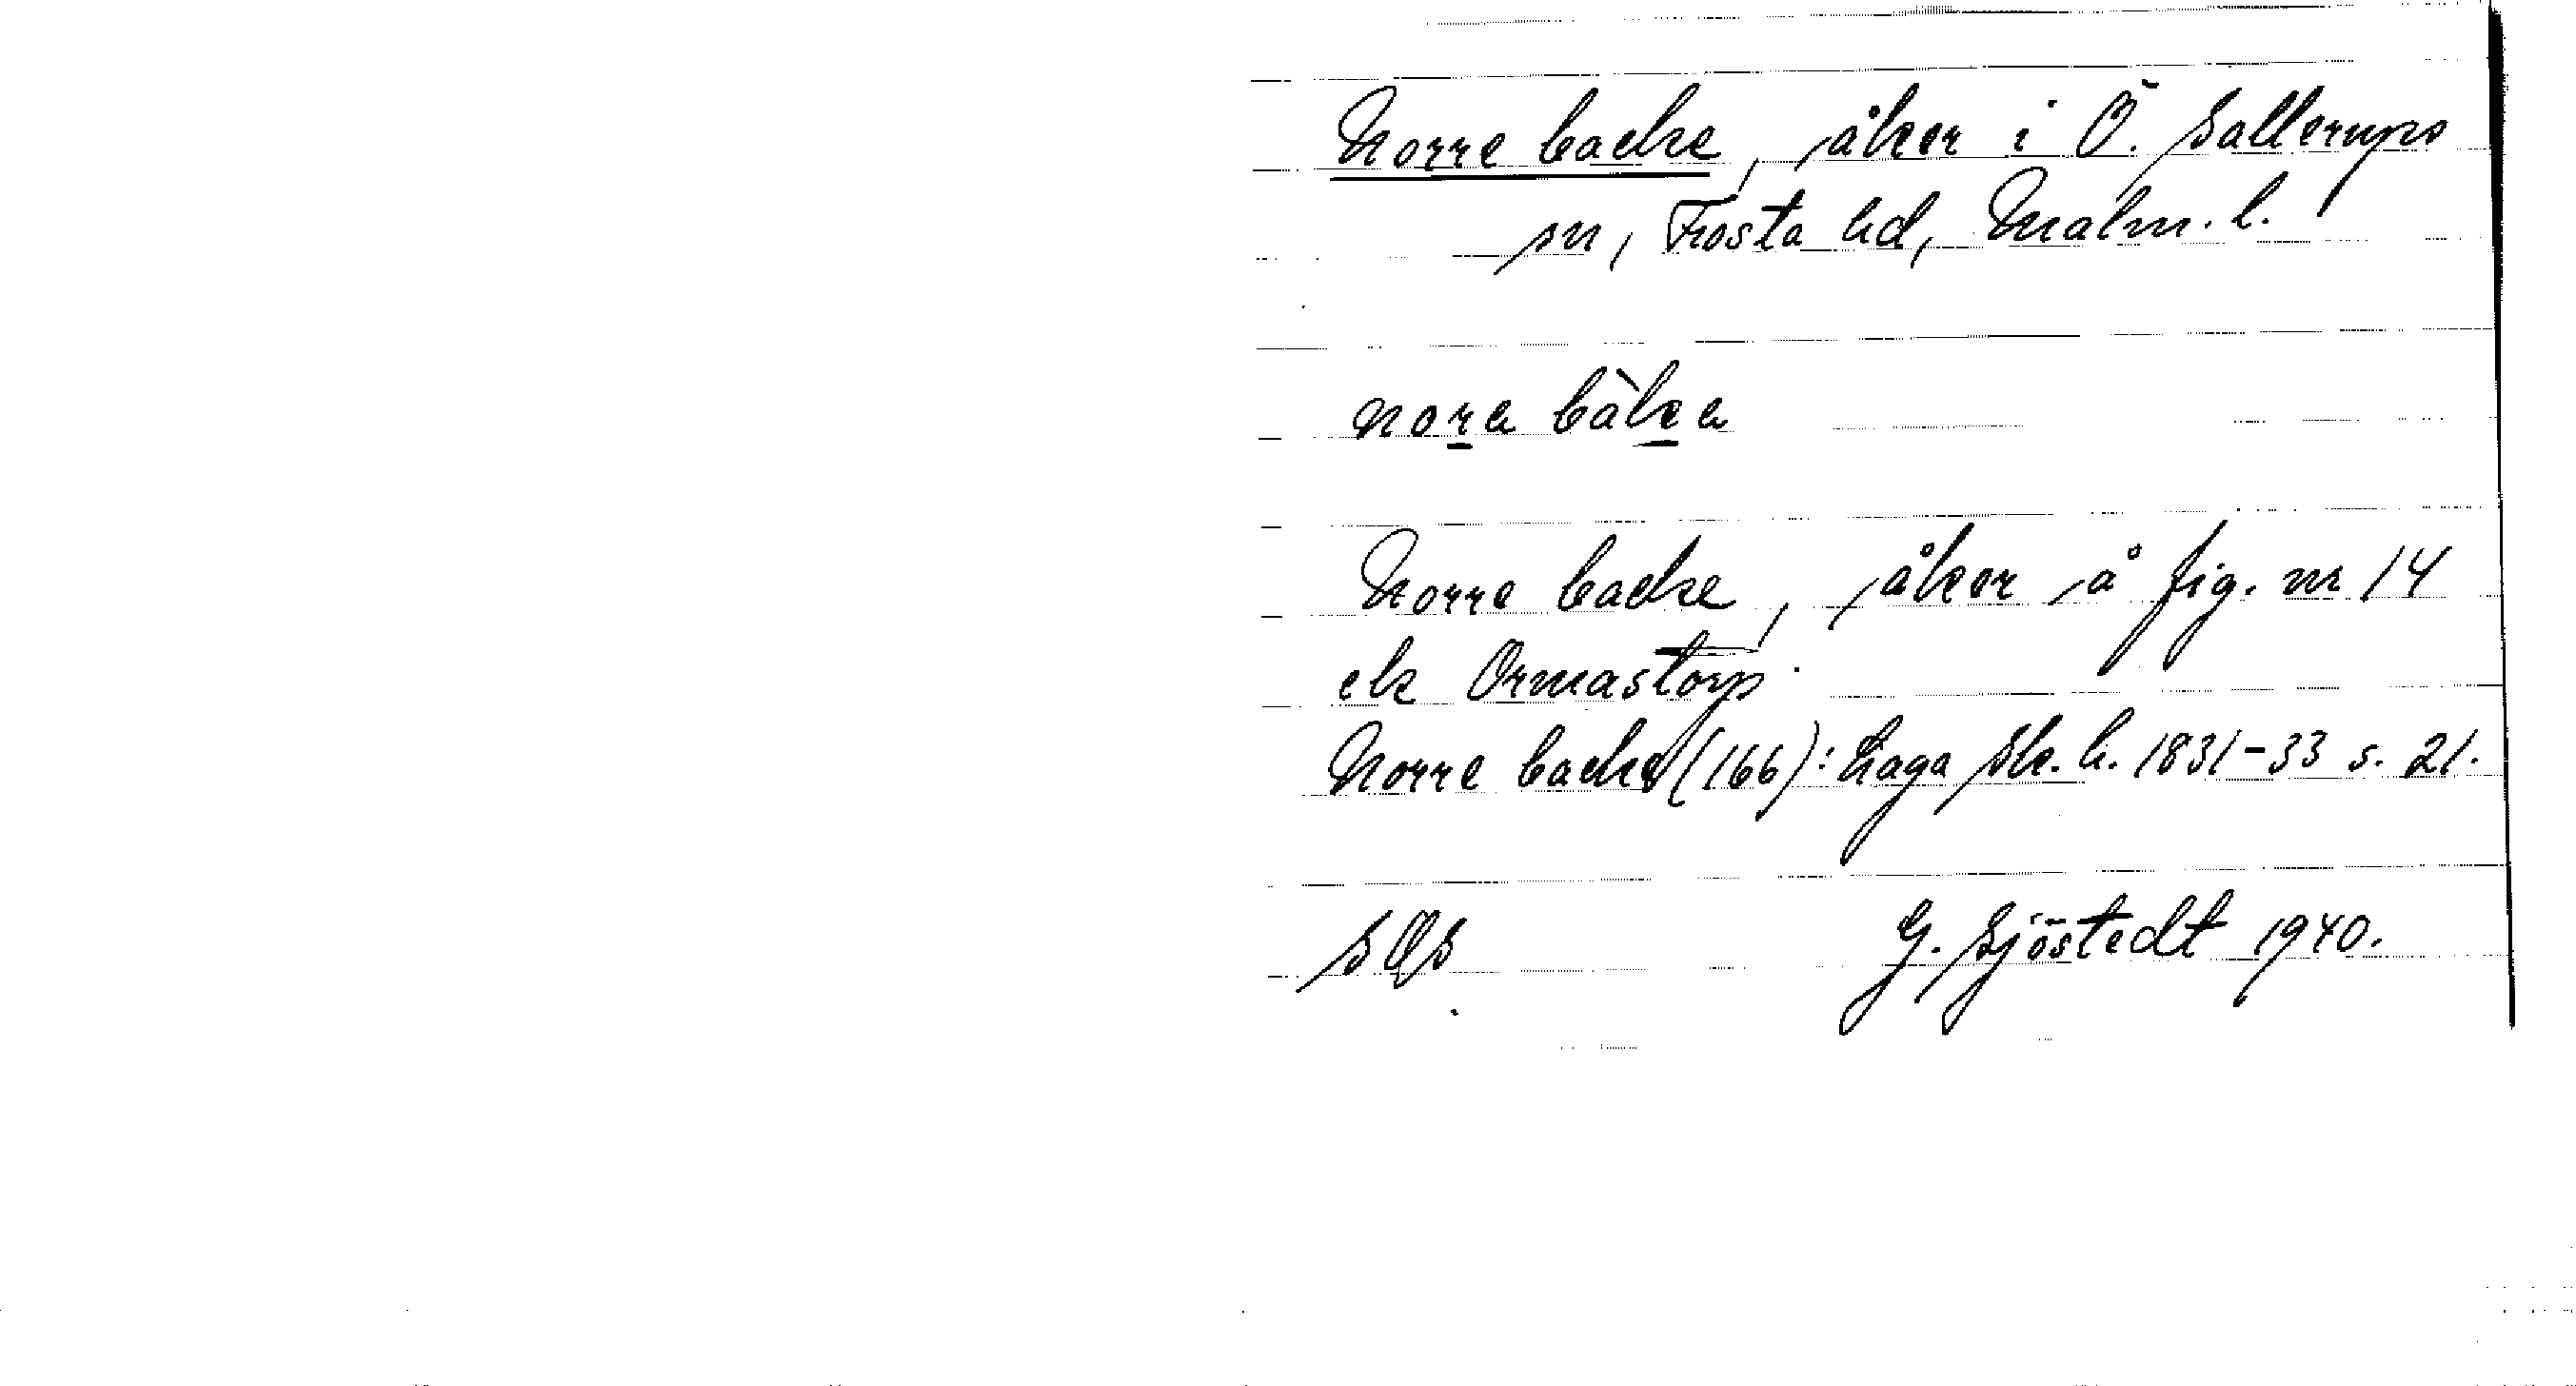 Norre backe, åker i Ö. Sallerups
sn, Frosta hd, Malm. l.
nora bàka
Norre backe, åker å fig. nr 14
ek Ormastorp.
Norre backe (166): Laga sk. h. 1831-33 s. 21.
SOS G. Sjöstedt 1940.